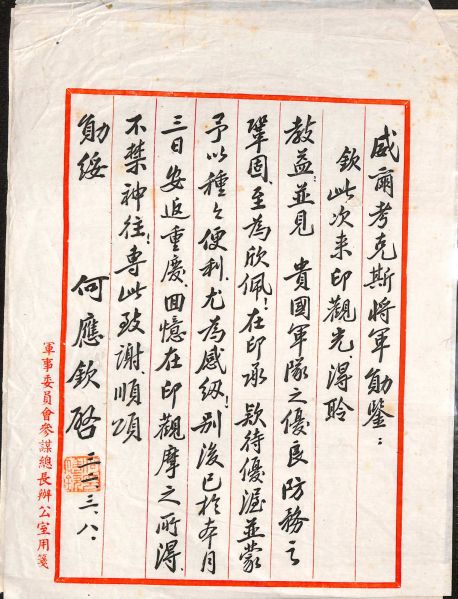 威爾考克斯將軍勛鑒：
欽此次来印觀光、得聆
教益、並見 貴國軍隊之優良防務之
鞏固、至為欣佩！在印承 欵待優渥並蒙
予以種々便利、尤為感級！别後已於本月
三日安返重慶、回憶在印觀摩之所得、
不禁神往！專此致謝、順頌
勛綏
何應欽啓 三二、三、八、
軍事委員會參謀總長辦公室用箋